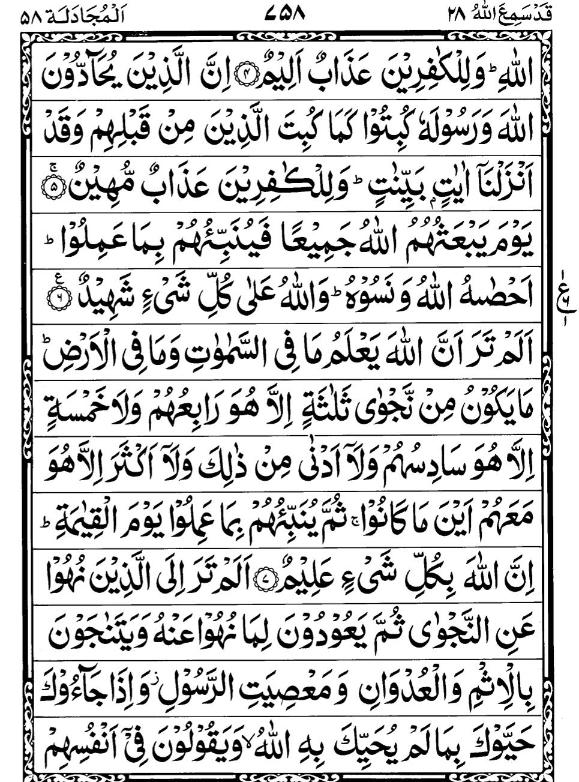 قَدْ سَمِعَ اللّٰهُ ٢٨ ٧٥٨ اَلْمُجَادَلَة ٥٨
اللّٰهِ ؕ وَلِلْكٰفِرِيْنَ عَذَابٌ اَلِيْمٌ ﴿۴﴾ اِنَّ الَّذِيْنَ يُحَآدُّوْنَ
اللّٰهَ وَرَسُوْلَهٗ كُبِتُوْا كَمَا كُبِتَ الَّذِيْنَ مِنْ قَبْلِهِمْ وَقَدْ
اَنْزَلْنَاۤ اٰيٰتٍۭ بَيِّنٰتٍ ؕ وَلِلْكٰفِرِيْنَ عَذَابٌ مُّهِيْنٌ ﴿۵﴾ ۚ
يَوْمَ يَبْعَثُهُمُ اللّٰهُ جَمِيْعًا فَيُنَبِّئُهُمْ بِمَا عَمِلُوْا ؕ
اَحْصٰىهُ اللّٰهُ وَنَسُوْهُ ؕ وَاللّٰهُ عَلٰى كُلِّ شَىْءٍ شَهِيْدٌ ﴿۶﴾ ع
اَلَمْ تَرَ اَنَّ اللّٰهَ يَعْلَمُ مَا فِى السَّمٰوٰتِ وَمَا فِى الْاَرْضِ ؕ
مَا يَكُوْنُ مِنْ نَّجْوٰى ثَلٰثَةٍ اِلَّا هُوَ رَابِعُهُمْ وَلَا خَمْسَةٍ
اِلَّا هُوَ سَادِسُهُمْ وَلَاۤ اَدْنٰى مِنْ ذٰلِكَ وَلَاۤ اَكْثَرَ اِلَّا هُوَ
مَعَهُمْ اَيْنَ مَا كَانُوْا ۚ ثُمَّ يُنَبِّئُهُمْ بِمَا عَمِلُوْا يَوْمَ الْقِيٰمَةِ ؕ
اِنَّ اللّٰهَ بِكُلِّ شَىْءٍ عَلِيْمٌ ﴿۷﴾ اَلَمْ تَرَ اِلَى الَّذِيْنَ نُهُوْا
عَنِ النَّجْوٰى ثُمَّ يَعُوْدُوْنَ لِمَا نُهُوْا عَنْهُ وَيَتَنٰجَوْنَ
بِالْاِثْمِ وَالْعُدْوَانِ وَمَعْصِيَتِ الرَّسُوْلِ ؗ وَاِذَا جَآءُوْكَ
حَيَّوْكَ بِمَا لَمْ يُحَيِّكَ بِهِ اللّٰهُ ۙ وَيَقُوْلُوْنَ فِىْۤ اَنْفُسِهِمْ